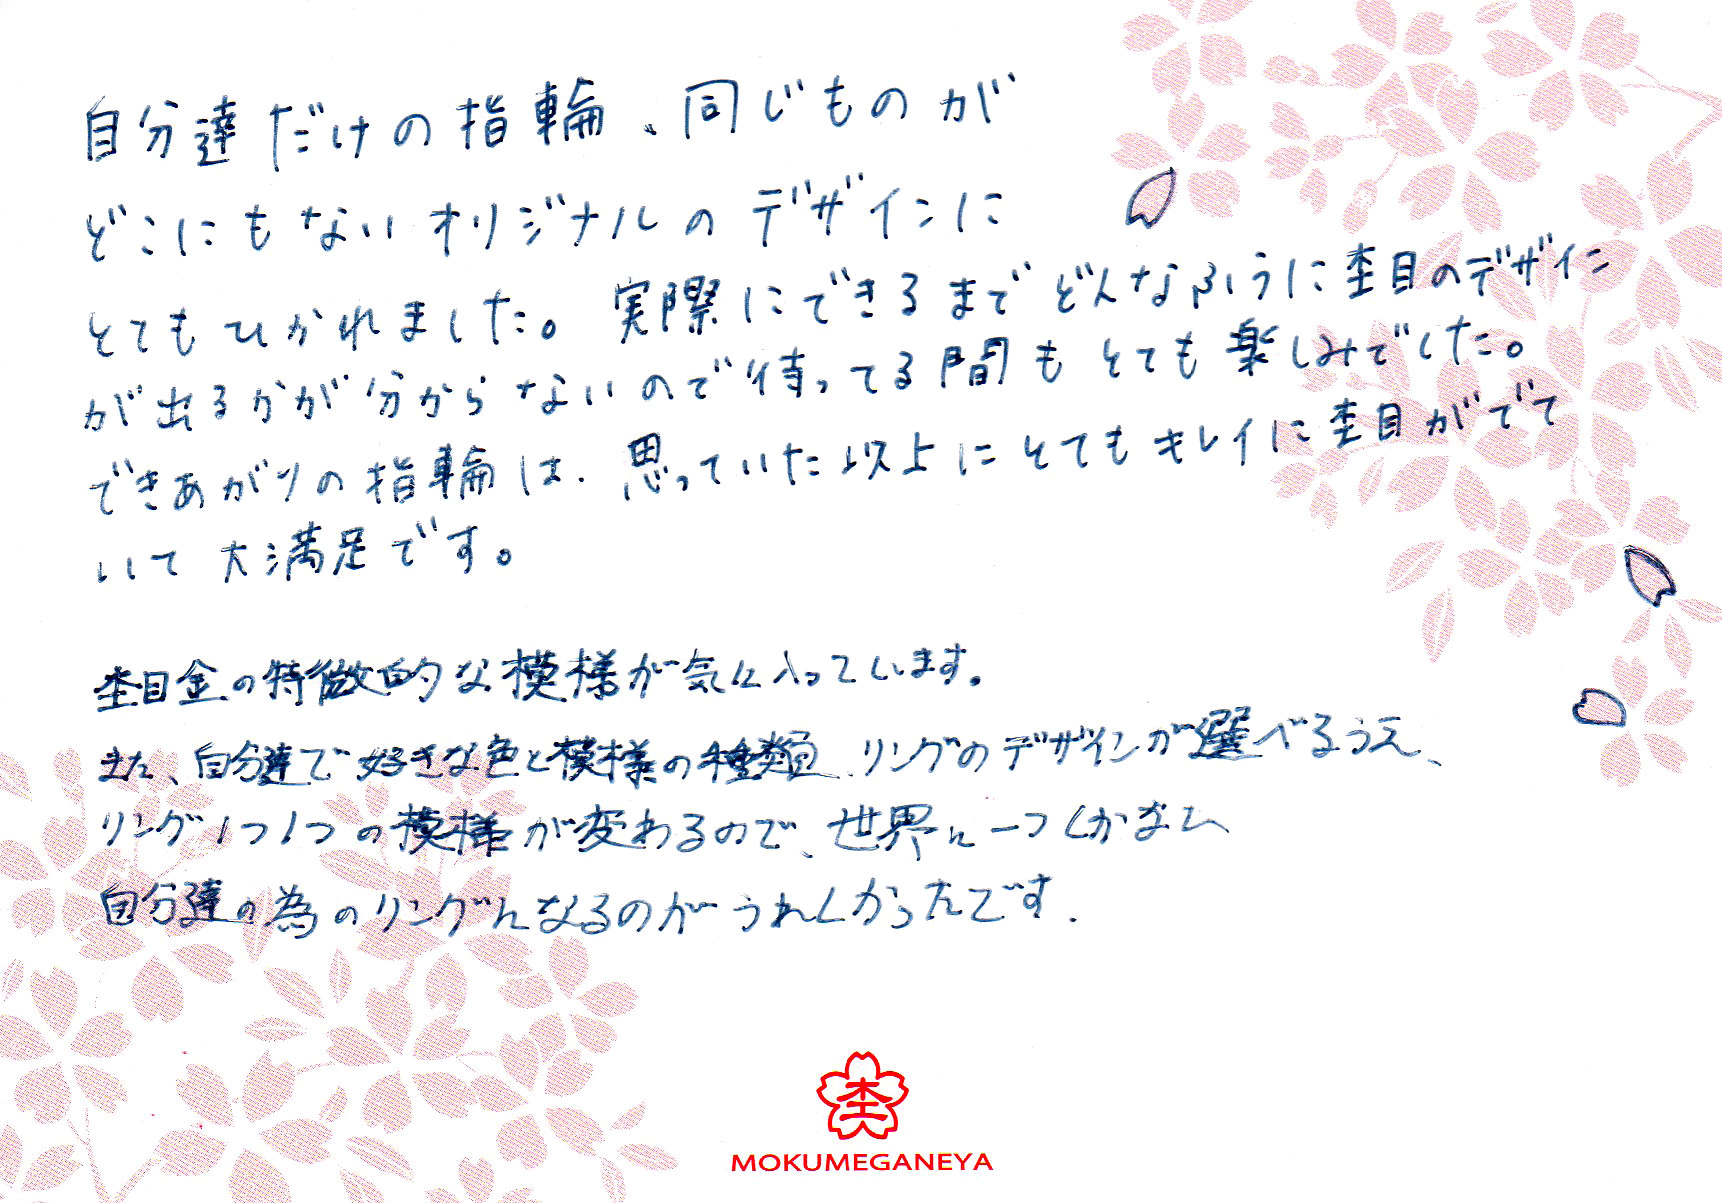 自分達だけの指輪、同じものが
どこにもないオリジナルのデザインに
とてもひかれました。実際にできるまでどんなふうに杢目のデザイン
が出るかが分からないので待ってる間もとても楽しみでした。
できあがりの指輪は、思っていた以上にとてもキレイに杢目がでて
いて大満足です。
杢目金の特徴的な模様が気に入っています。
また、自分達で好きな色と模様の種類、リングのデザインが選べるうえ、
リング1つ1つの模様が変わるので、世界に一つしかない
自分達の為のリングになるのがうれしかったです.
杢
MOKUMEGANEYA